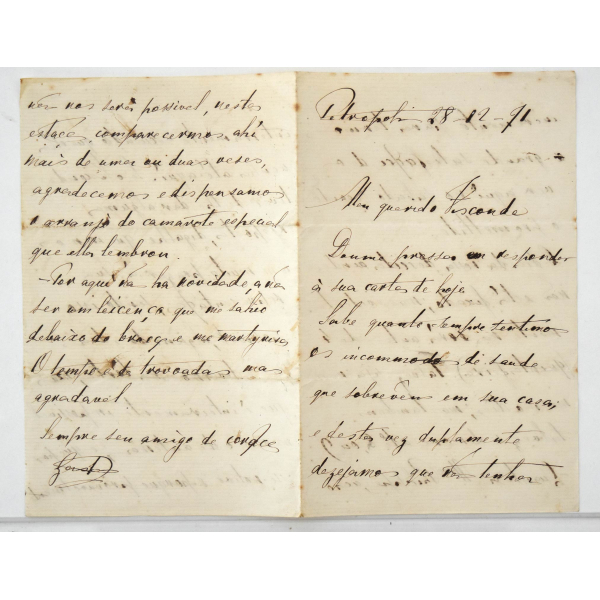 Petropolis 28-12-91
Meu querido Visconde
Dou-me pressa em responder
à sua carta de hoje.
Sabe quanto sempre sentimos
os incommodos de saude
que sobrevêm em sua casa;
e desta vez duplamente
dezejamos que não tenha
nos será possivel, nesta
estação, comparecermos ahi
mais de uma ou duas veses,
agradecemos e dispensamos
o arranjo do camarote especial
que ella lembrou.
- Por aqui não ha novidade, a não
ser um leicenço que me sahio
debaixo do braço e me martyrisa
O tempo é de trovoadas mas
agradavel
Sempre seu amigo de coração